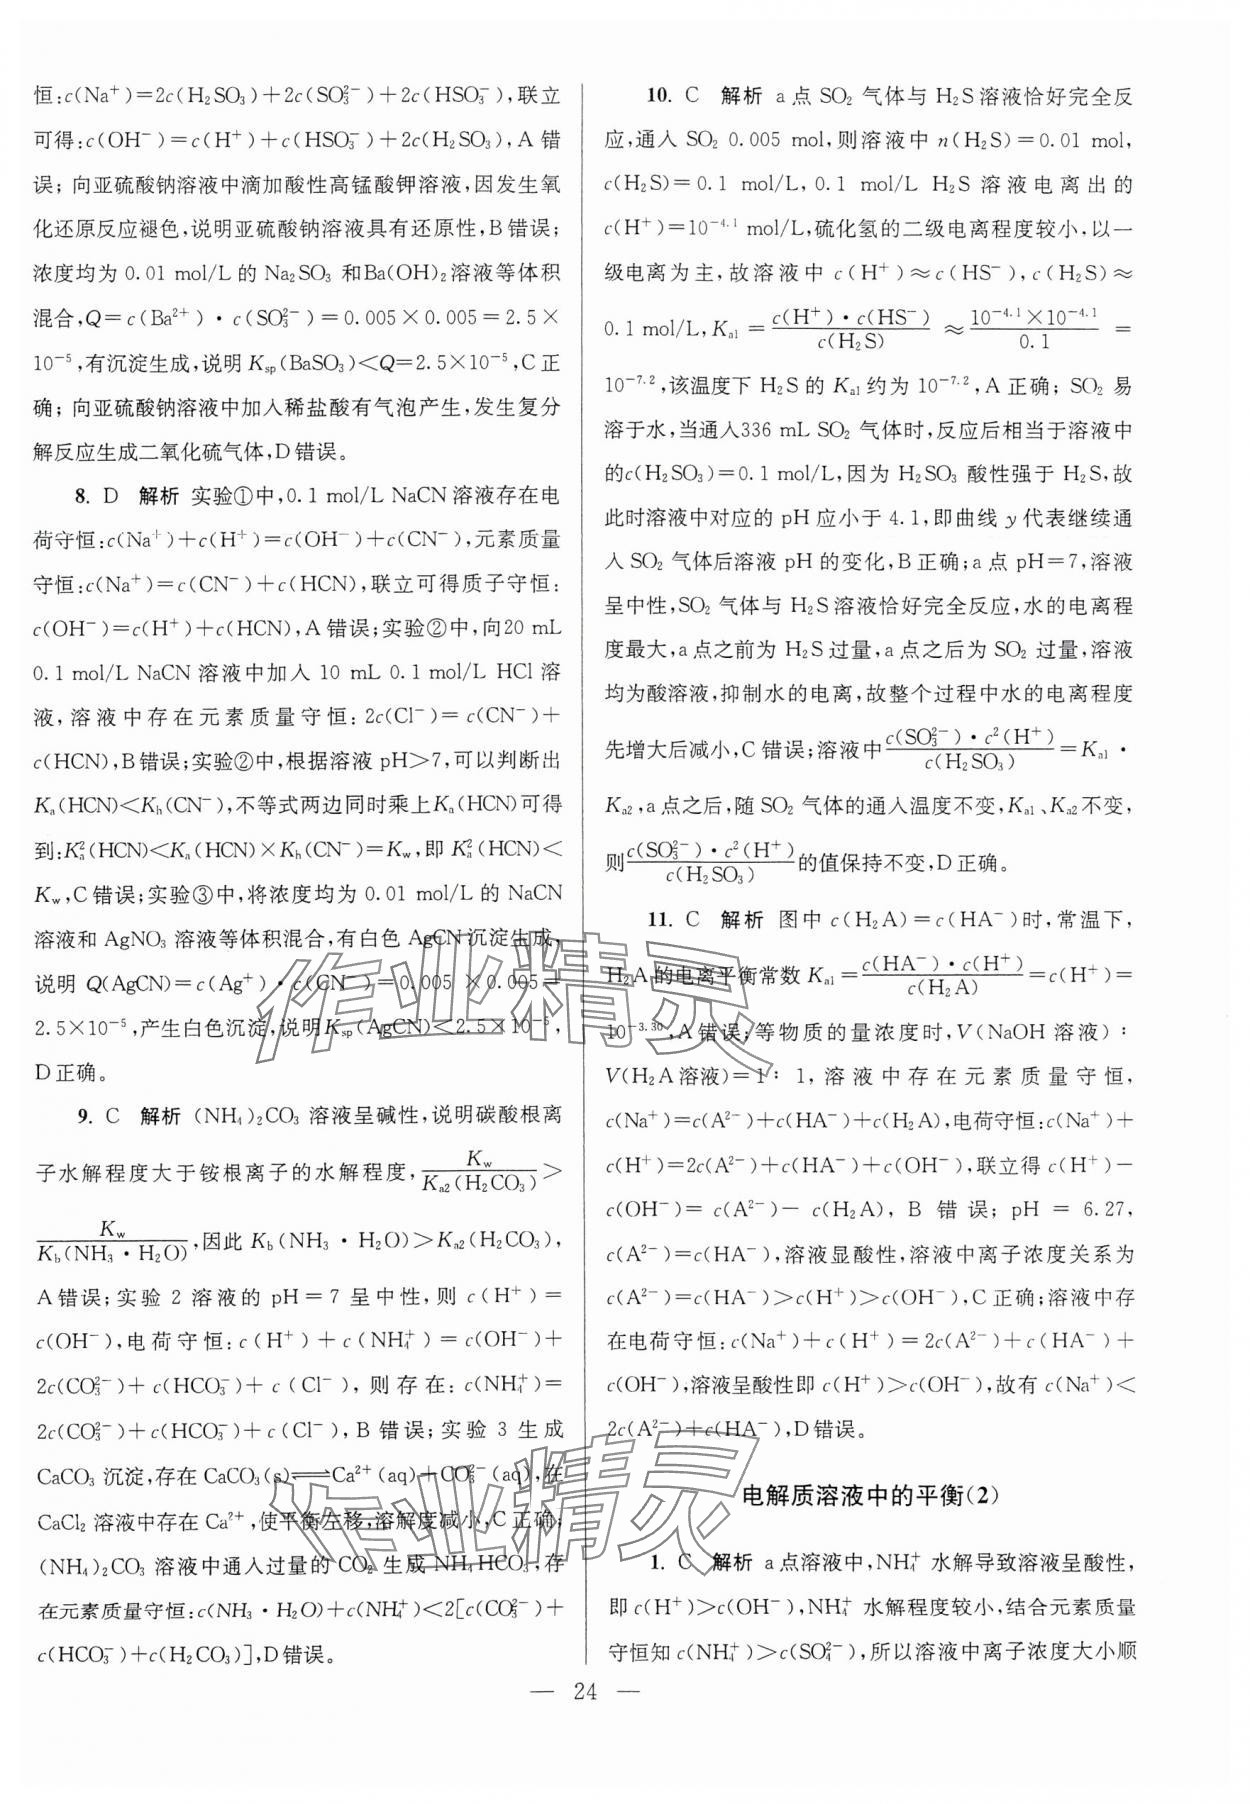 恒:c(Na⁺)=2c(H₂SO₃)+2c(SO₃²⁻)+2c(HSO₃⁻),联立
可得:c(OH⁻)=c(H⁺)+c(HSO₃⁻)+2c(H₂SO₃),A 错
误;向亚硫酸钠溶液中滴加酸性高锰酸钾溶液,因发生氧
化还原反应褪色,说明亚硫酸钠溶液具有还原性,B 错误;
浓度均为 0.01 mol/L 的 Na₂SO₃ 和Ba(OH)₂溶液等体积
混合,Q=c(Ba²⁺)·c(SO₃²⁻)=0.005×0.005=2.5×
10⁻⁵,有沉淀生成,说明 Kₛₚ(BaSO₃)<Q=2.5×10⁻⁵,C 正
确;向亚硫酸钠溶液中加入稀盐酸有气泡产生,发生复分
解反应生成二氧化硫气体,D 错误。
8. D 解析 实验①中,0.1 mol/L NaCN 溶液存在电
荷守恒:c(Na⁺)+c(H⁺)=c(OH⁻)+c(CN⁻),元素质量
守恒:c(Na⁺)=c(CN⁻)+c(HCN),联立可得质子守恒:
c(OH⁻)=c(H⁺)+c(HCN),A 错误;实验②中,向20 mL
0.1 mol/L NaCN 溶液中加入 10 mL 0.1 mol/L HCl 溶
液,溶液中存在元素质量守恒:2c(Cl⁻)=c(CN⁻)+
c(HCN),B 错误;实验②中,根据溶液 pH>7,可以判断出
Kₐ(HCN)<Kₕ(CN⁻),不等式两边同时乘上Kₐ(HCN)可得
到:Kₐ²(HCN)<Kₐ(HCN)×Kₕ(CN⁻)=K_w,即 Kₐ²(HCN)<
K_w,C 错误;实验③中,将浓度均为 0.01 mol/L 的 NaCN
溶液和 AgNO₃ 溶液等体积混合,有白色 AgCN 沉淀生成,
说明 Q(AgCN)=c(Ag⁺)·c(CN⁻)=0.005×0.005=
2.5×10⁻⁵,产生白色沉淀,说明Kₛₚ(AgCN)<2.5×10⁻⁵,
D 正确。
9. C 解析 (NH₄)₂CO₃ 溶液呈碱性,说明碳酸根离
子水解程度大于铵根离子的水解程度,K_w/Kₐ₂(H₂CO₃)>
K_w/K_b(NH₃·H₂O),因此 K_b(NH₃·H₂O)>Kₐ₂(H₂CO₃),
A 错误;实验 2 溶液的 pH=7 呈中性,则 c(H⁺)=
c(OH⁻),电荷守恒:c(H⁺)+c(NH₄⁺)=c(OH⁻)+
2c(CO₃²⁻)+c(HCO₃⁻)+c(Cl⁻),则存在:c(NH₄⁺)=
2c(CO₃²⁻)+c(HCO₃⁻)+c(Cl⁻),B 错误;实验 3 生成
CaCO₃ 沉淀,存在 CaCO₃(s)⇌Ca²⁺(aq)+CO₃²⁻(aq),在
CaCl₂ 溶液中存在 Ca²⁺,使平衡左移,溶解度减小,C 正确;
(NH₄)₂CO₃ 溶液中通入过量的 CO₂ 生成 NH₄HCO₃,存
在元素质量守恒:c(NH₃·H₂O)+c(NH₄⁺)<2[c(CO₃²⁻)+
c(HCO₃⁻)+c(H₂CO₃)],D 错误。
10. C 解析 a 点 SO₂ 气体与 H₂S 溶液恰好完全反
应,通入 SO₂ 0.005 mol,则溶液中 n(H₂S)=0.01 mol,
c(H₂S)=0.1 mol/L,0.1 mol/L H₂S 溶液电离出的
c(H⁺)=10⁻⁴·¹ mol/L,硫化氢的二级电离程度较小,以一
级电离为主,故溶液中 c(H⁺)≈c(HS⁻),c(H₂S)≈
0.1 mol/L,Kₐ₁=c(H⁺)·c(HS⁻)/c(H₂S)≈10⁻⁴·¹×10⁻⁴·¹/0.1=
10⁻⁷·²,该温度下 H₂S 的 Kₐ₁约为 10⁻⁷·²,A 正确;SO₂ 易
溶于水,当通入336 mL SO₂ 气体时,反应后相当于溶液中
的c(H₂SO₃)=0.1 mol/L,因为 H₂SO₃ 酸性强于 H₂S,故
此时溶液中对应的 pH 应小于 4.1,即曲线 y 代表继续通
入 SO₂ 气体后溶液 pH 的变化,B 正确;a 点 pH=7,
呈中性,SO₂ 气体与 H₂S 溶液恰好完全反应,水的电离程
度最大,a 点之前为 H₂S 过量,a 点之后为 SO₂ 过量,溶液
均为酸溶液,抑制水的电离,故整个过程中水的电离程度
先增大后减小,C 错误;溶液中c(SO₃²⁻)·c²(H⁺)/c(H₂SO₃)=Kₐ₁·
Kₐ₂,a 点之后,随 SO₂ 气体的通入温度不变,Kₐ₁、Kₐ₂不变,
则c(SO₃²⁻)·c²(H⁺)/c(H₂SO₃)的值保持不变,D 正确。
11. C 解析 图中 c(H₂A)=c(HA⁻)时,常温下,
H₂A 的电离平衡常数 Kₐ₁=c(HA⁻)·c(H⁺)/c(H₂A)=c(H⁺)=
10⁻³·³⁰,A 错误;等物质的量浓度时,V(NaOH 溶液):
V(H₂A 溶液)=1:1,溶液中存在元素质量守恒,
c(Na⁺)=c(A²⁻)+c(HA⁻)+c(H₂A),电荷守恒:c(Na⁺)+
c(H⁺)=2c(A²⁻)+c(HA⁻)+c(OH⁻),联立得 c(H⁺)−
c(OH⁻)=c(A²⁻)−c(H₂A),B 错误;pH=6.27,
c(A²⁻)=c(HA⁻),溶液显酸性,溶液中离子浓度关系为
c(A²⁻)=c(HA⁻)>c(H⁺)>c(OH⁻),C 正确;溶液中存
在电荷守恒:c(Na⁺)+c(H⁺)=2c(A²⁻)+c(HA⁻)+
c(OH⁻),溶液呈酸性即 c(H⁺)>c(OH⁻),故有 c(Na⁺)<
2c(A²⁻)+c(HA⁻),D 错误。
电解质溶液中的平衡(2)
1. C 解析 a 点溶液中,NH₄⁺ 水解导致溶液呈酸性,
即 c(H⁺)>c(OH⁻),NH₄⁺ 水解程度较小,结合元素质量
守恒知 c(NH₄⁺)>c(SO₄²⁻),所以溶液中离子浓度大小顺
— 24 —
作业精灵
作业精灵